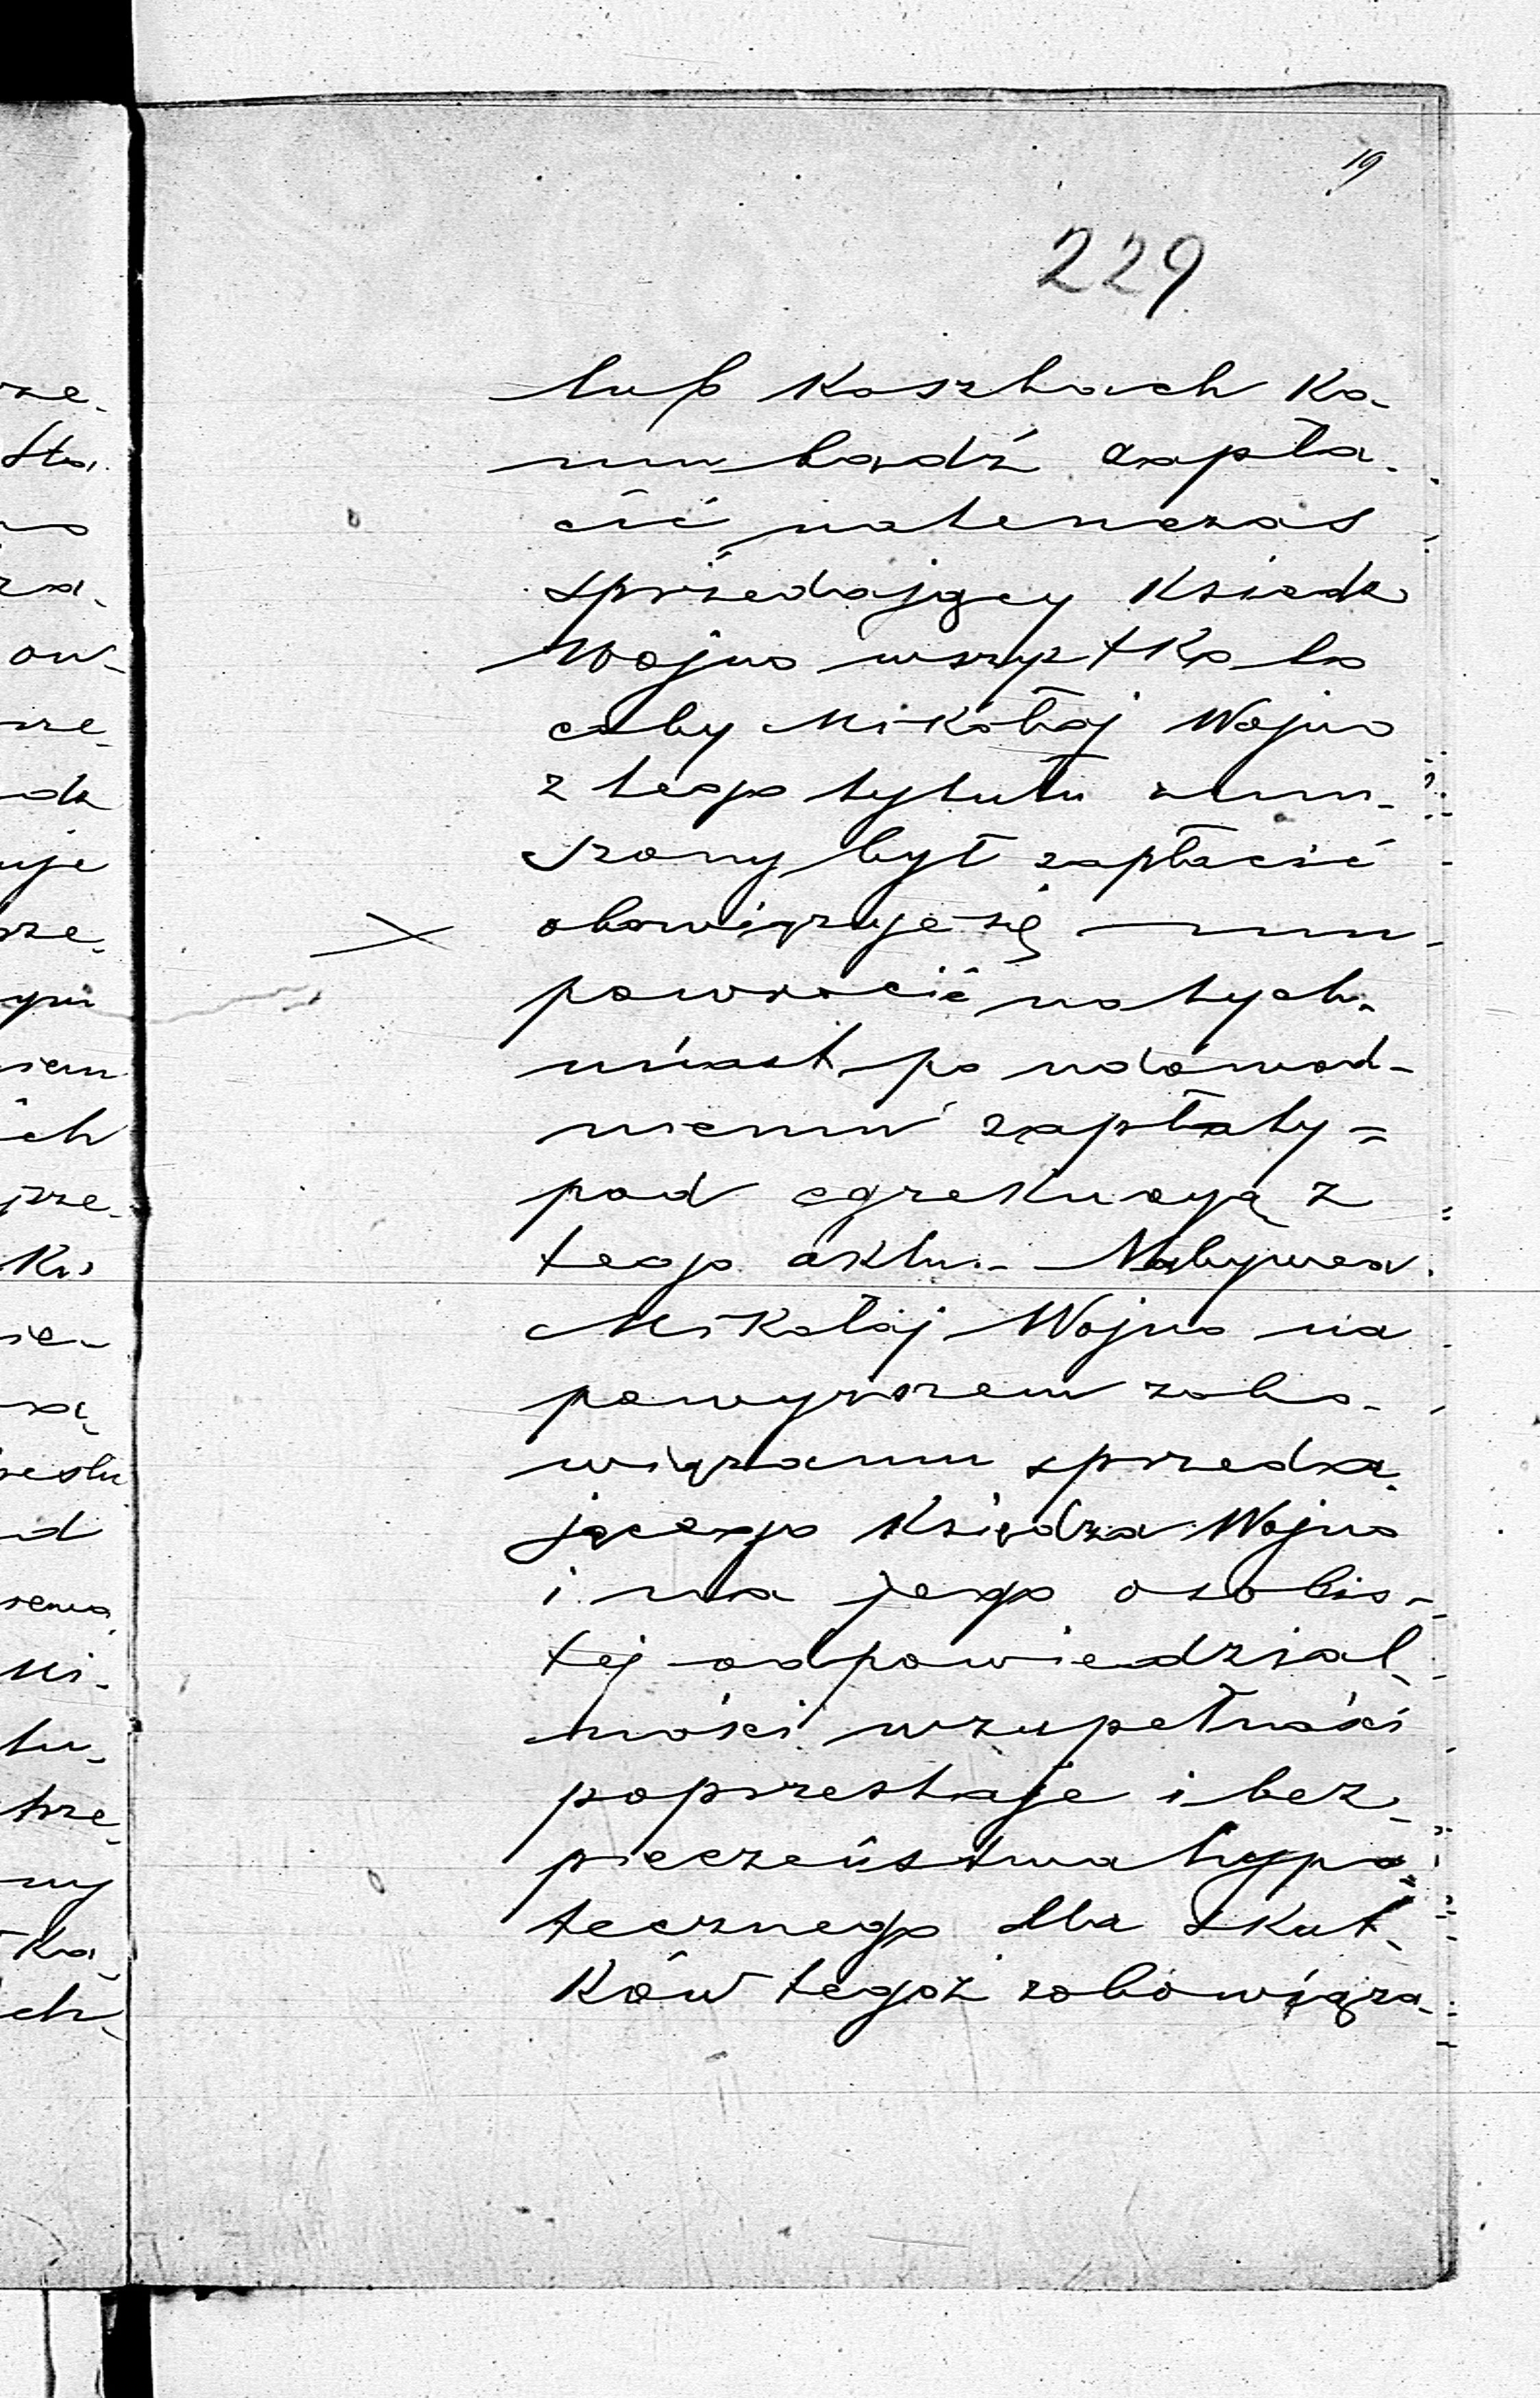 19
229
lub kosztach ko-
mu bądź zapła-
cić, natenczas
sprzedający Ksiądz
Wojno wszystko to
coby Mikołaj Wojno
z tego tytułu zmu-
szony był zapłacić
obowiązuje się mu
powrócić natych-
miast po udowod-
nieniu zapłaty =
pod egzekucyą z
tego aktu. - Nabywca
Mikołaj Wojno na
powyższem zobo-
wiązaniu sprzeda-
jącego Księdza Wojno
i na jego osobis-
tej odpowiedzial-
ności wzupełności
poprzestaje i bez-
pieczeństwa hypo-
tecznego dla skut-
ków tegoż zobowiąza-
rze-
ow-
dz
uje
rze-
ym
niem
ich
prze-
nie-
są
d
Mi-
tu-
trze-
ny
ch-